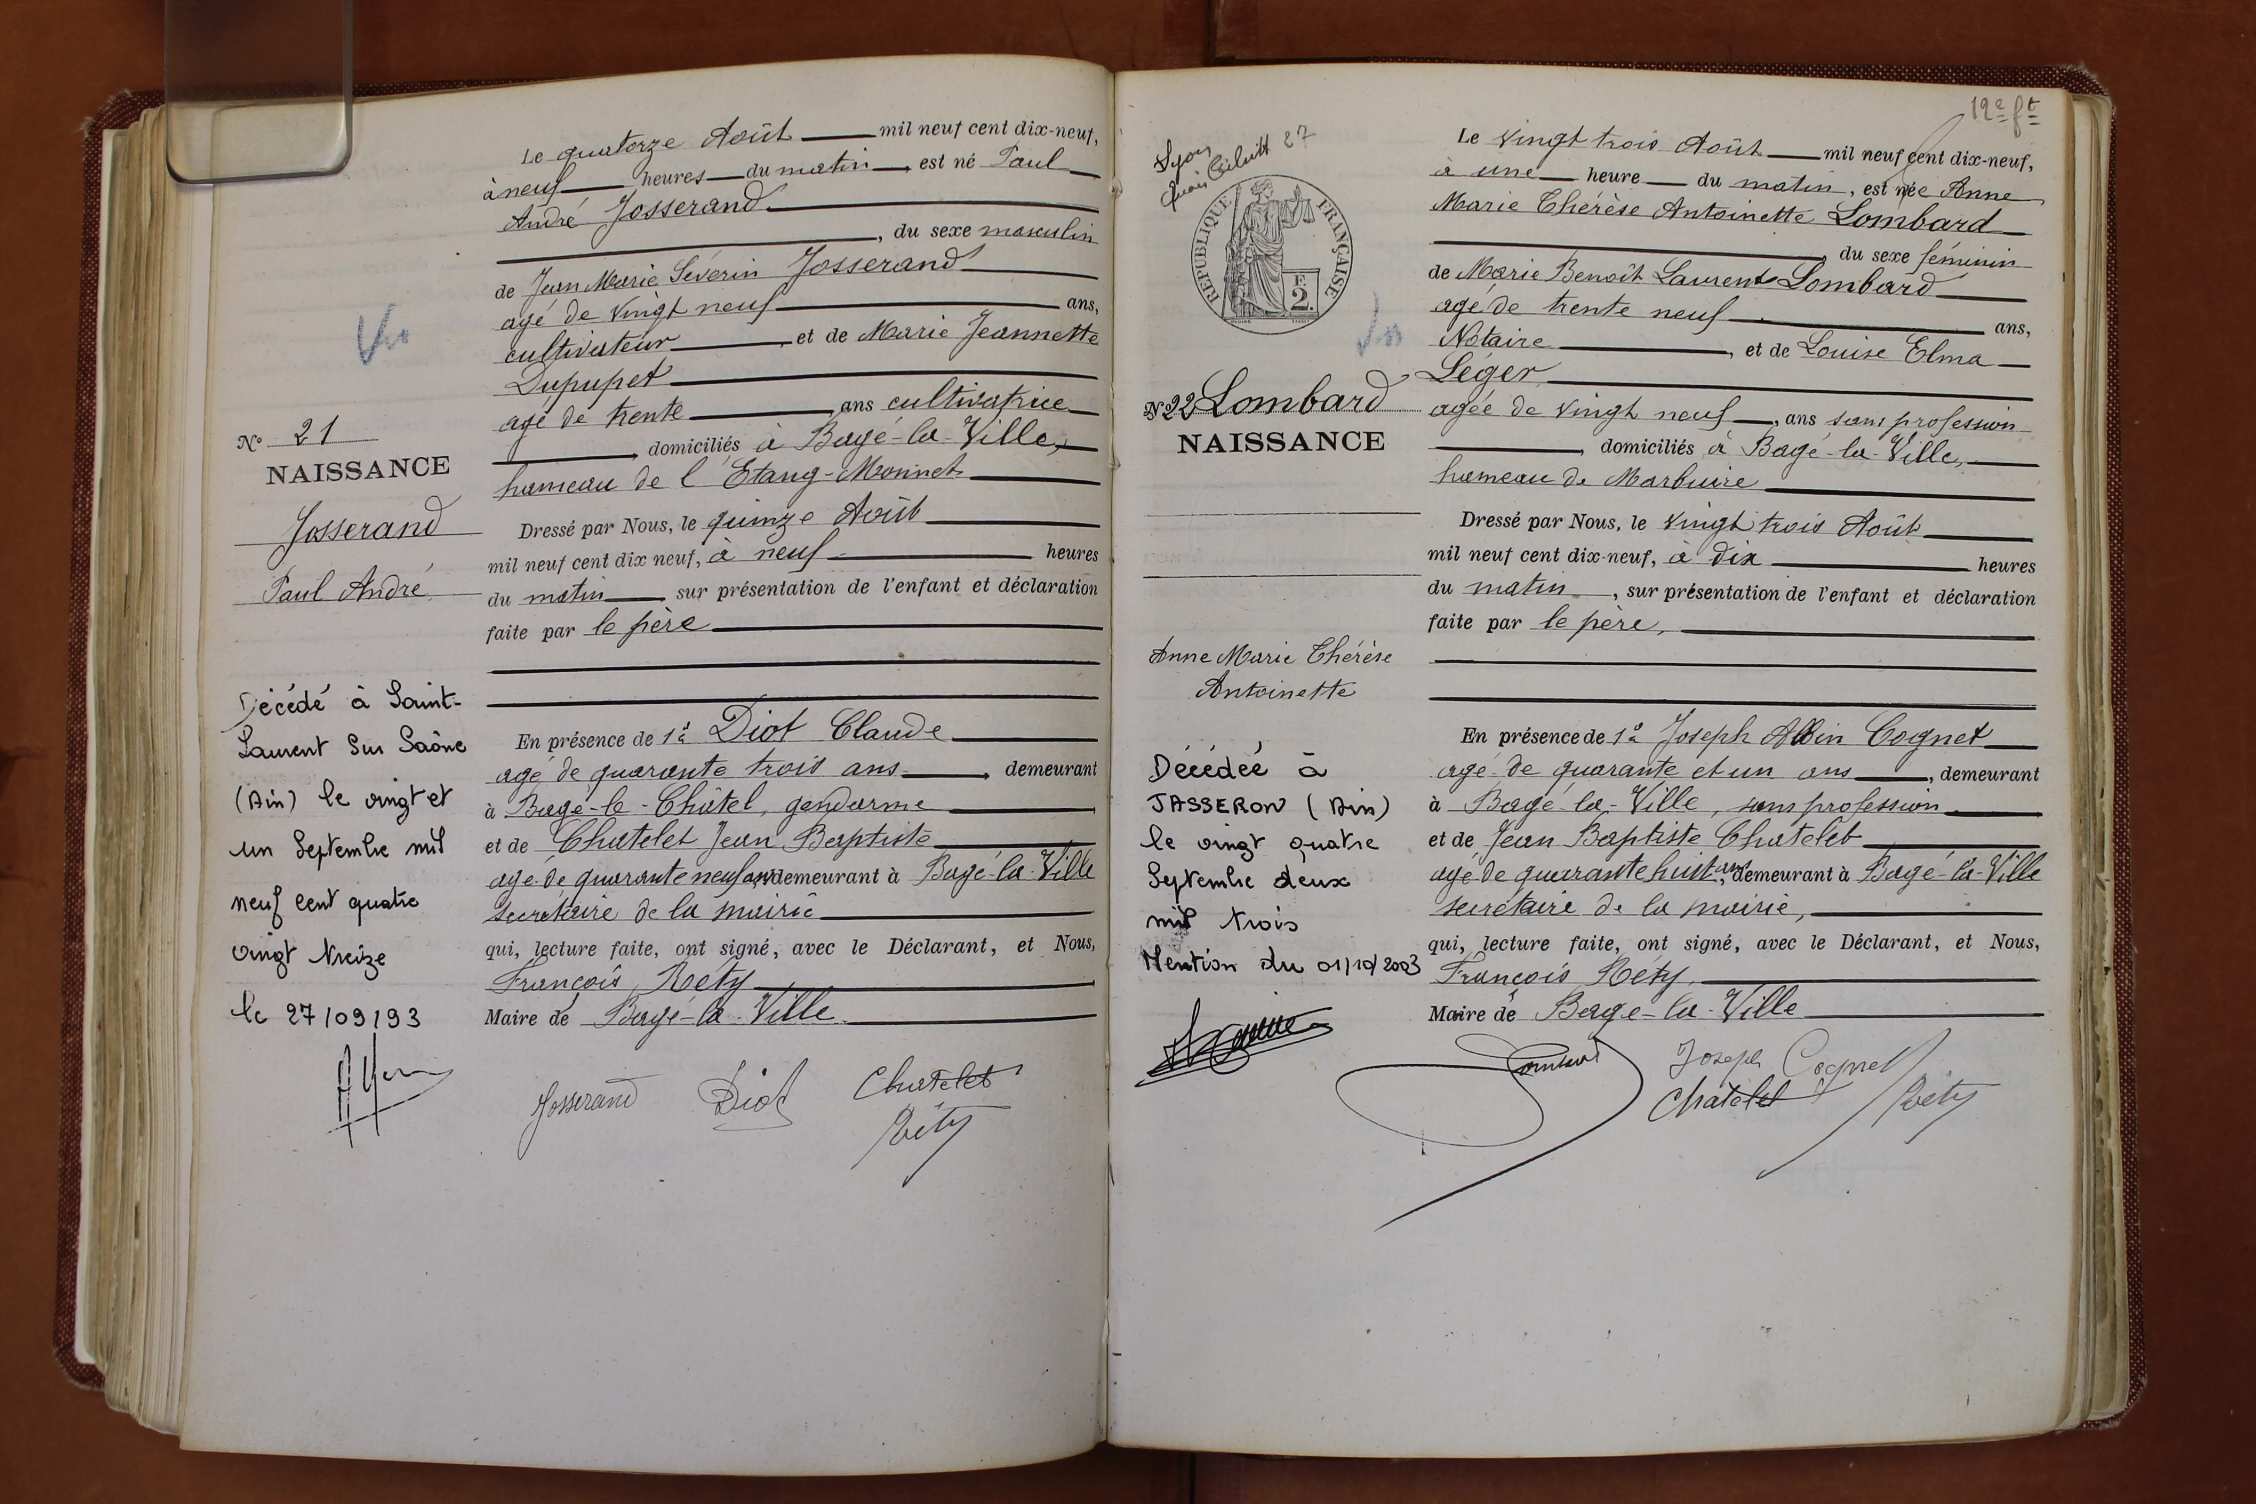 Le quatorze Août mil neuf cent dix-neuf,
à neuf heures du matin, est né Paul
André Josserand
, du sexe masculin
de Jean Marie Séverin Josserand
agé de vingt neuf ans,
cultivateur, et de Marie Jeannette
Dupupet
agé de trente, ans cultivatrice
, domiciliés à Bagé-la-Ville,
hameau de l'Etang-Monnet
Dressé par Nous, le quinze Août
mil neuf cent dix neuf, à neuf heures
du matin, sur présentation de l'enfant et déclaration
faite par le père
En présence de 1º Diot Claude
agé de quarante trois ans, demeurant
à Bagé-le-Châtel, gendarme
et de Chatelet Jean Baptiste
agé de quarante neuf ans, demeurant à Bagé-la-Ville
secrétaire de la mairie
qui, lecture faite, ont signé, avec le Déclarant, et Nous,
François Réty
Maire de Bagé-la-Ville
Josserand Diot Chatelet
Réty
Nº 21
NAISSANCE
Josserand
Paul André
Décédé à Saint-
Laurent sur Saône
(Ain) le vingt et
un Septembre mil
neuf cent quatre
vingt treize
le 27/09/93
12e ft
Lyon
27
RÉPUBLIQUE FRANÇAISE
2
Le vingt trois Août mil neuf cent dix-neuf,
à une heure du matin, est née Anne
Marie Thérèse Antoinette Lombard
, du sexe féminin
de Marie Benoît Laurent Lombard
agé de trente neuf ans,
Notaire, et de Louise Elma
Léger
agée de vingt neuf, ans sans profession
, domiciliés à Bagé-la-Ville,
hameau de Marbuire
Dressé par Nous, le vingt trois Août
mil neuf cent dix-neuf, à dix heures
du matin, sur présentation de l'enfant et déclaration
faite par le père,
En présence de 1º Joseph Albin Cognet
agé de quarante et un ans, demeurant
à Bagé-la-Ville, sans profession
et de Jean Baptiste Chatelet
agé de quarante huit ans, demeurant à Bagé-la-Ville
secrétaire de la mairie,
qui, lecture faite, ont signé, avec le Déclarant, et Nous,
François Réty,
Maire de Bagé-la-Ville
Lombard Joseph Cognet
Chatelet Réty
Nº 22 Lombard
NAISSANCE
Anne Marie Thérèse
Antoinette
Décédée à
JASSERON (Ain)
le vingt quatre
Septembre deux
mil trois
Mention du 01/10/2003